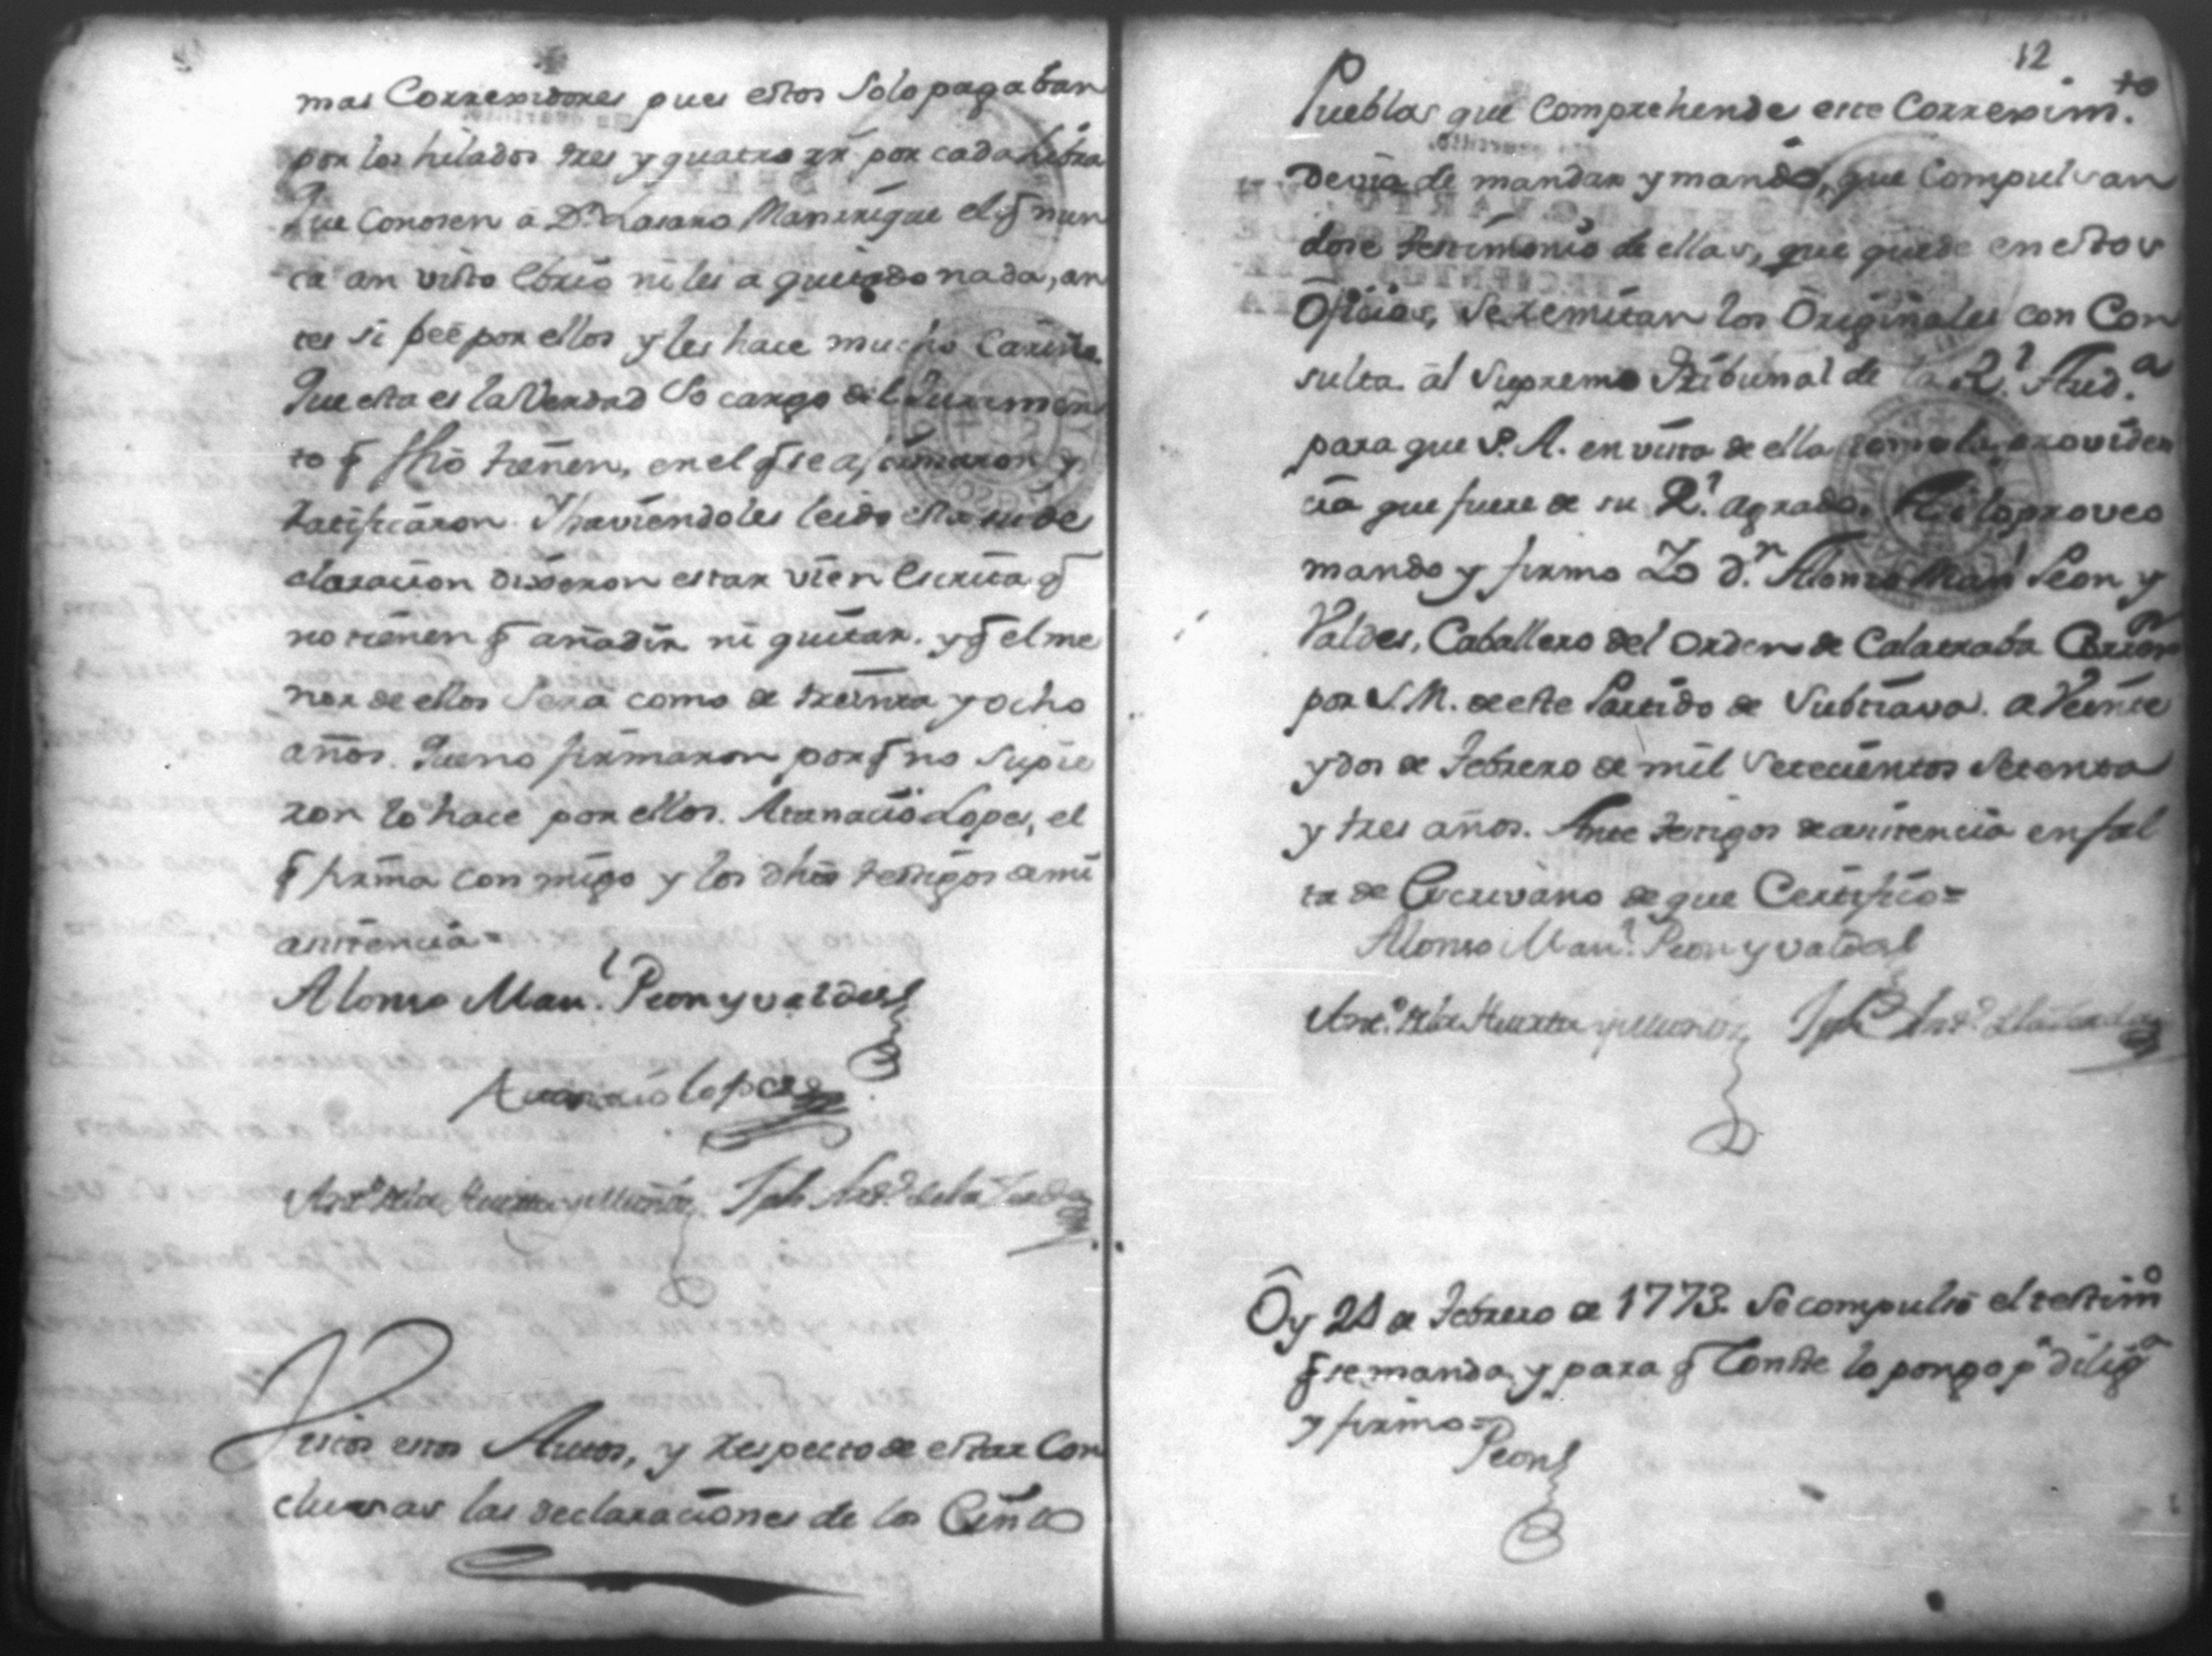 mas Correxidores pues estos Solo pagaban
por los hilados tres y quatro rr.s por cada libra
Que Conosen a D.n Lasaro Manrrique el q̃ nun
ca an visto Ebrio ni les a quitado nada, an
tes si peē por ellos y les hace mucho Cariño.
Que esta es la Verdad So cargo del Juramen
to q̃ fho tienen, en el q̃ se afirmaron y
ratificaron. Y haviendoles leido esta su de
claracion dixeron estar vien Escrita q̃
no tienen q̃ añadir ni quitar. y q̃ el me
nor de ellos Sera como de treinta y ocho
años. Que no firmaron porq̃ no Supie
ron lo hace por ellos. Atanacio Lopes, el
q̃ firma conmigo y los dhos testigos de mi
asistencia=
Alonso Man.l Peon y valdes
Atanacio lopes
Ant.o de la Huerta y Muños Jph And.s de la
Vistos estos Autos, y respecto de estar Con
clusas las declaraciones de los Cinco
12
Pueblos que Comprehende este Correxim.to
devia de mandar y mandó, que Compulsan
dose testimonio de ellas, que quede en estos
Oficios, Se remitan los Originales con Con
sulta al Supremo Tribunal de la R.l Aud.a
para que S. A. en vista de ella tome la providen
cia que fuere de su R.l agrado. Asi lo proveo
mando y firmo Yo d.n Alonso Man.l Peon y
Valdes, Caballero del Orden de Calatraba Corr.or
por S. M. de este Partido de Subtiava. a Veinte
y dos de Febrero de mil Setecientos Setenta
y tres años. Ante testigos de asistencia en fal
ta de Escrivano de que Certifico=
Alonso Man.l Peon y valdes
Ant.o de la Huerta y Muños Jph And.s
Oy 24 de Febrero de 1773. Se compulsó el testim.o
q̃ se manda, y para q̃ Conste lo pongo p.r dilig.a
y firmo=
Peon